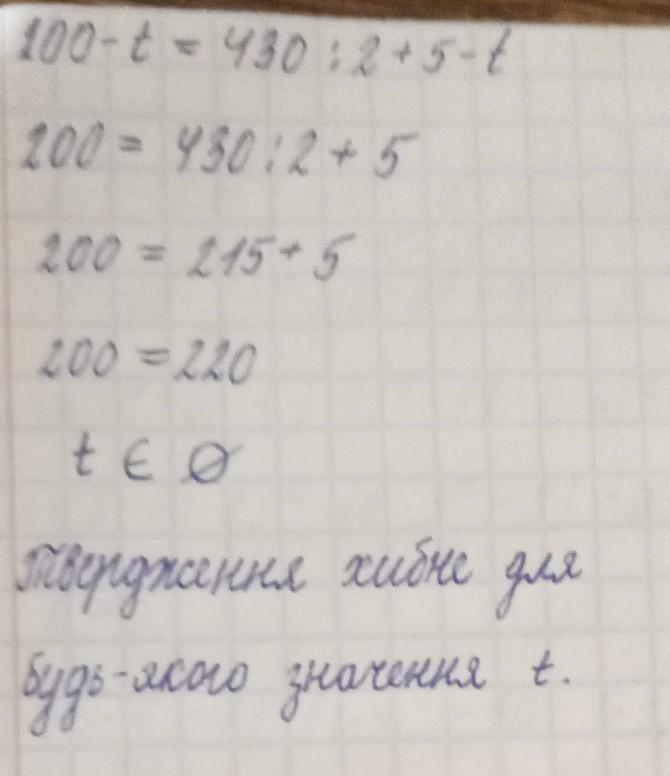 200 - t = 430 : 2 + 5 - t
200 = 430 : 2 + 5
200 = 215 + 5
200 = 220
t ∈ ∅
Твердження хибне для
будь-якого значення t.